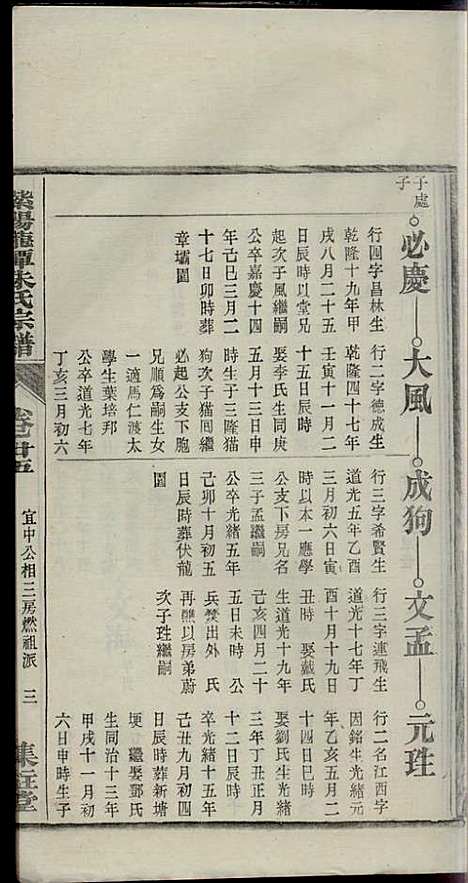 子處
子
必慶
大風
成狗
文孟
元珄
行四字昌林生
乾隆十九年甲
戌八月二十五
日辰時以堂兄
起次子風繼嗣
公卒嘉慶十四
年己巳三月二
十七日卯時葬
章壩園
行二字德成生
乾隆四十七年
壬寅十一月二
十五日辰時
娶李氏生同庚
五月十三日申
時生子三隆猫
狗次子猫囬繼
必起公支下胞
兄順爲嗣生女
一適馬仁渡太
學生葉培邦
公卒道光七年
丁亥三月初六
日辰時葬伏龍
園
行三字希賢生
道光五年乙酉
三月初六日寅
時以本一應學
公支下房兄名
三子孟繼嗣
公卒光緒五年
己卯十月初五
行三字連飛生
道光十七年丁
酉十月十九日
丑時 娶戴氏
生道光十九年
己亥四月二十
五日未時 公
兵燹出外 氏
再醮以房弟蔚
次子珄繼嗣
行二名江西字
因銘生光緒元
年乙亥五月二
十四日巳時
娶劉氏生光緒
三年丁丑正月
十二日辰時
卒光緒十五年
己丑九月初四
日辰時葬新塘
塓 繼娶鄧氏
生同治十三年
甲戌十一月初
六日申時生子
紫陽龍潭朱氏宗譜
卷廿五
宜中公相三房燃祖派
三
集註堂